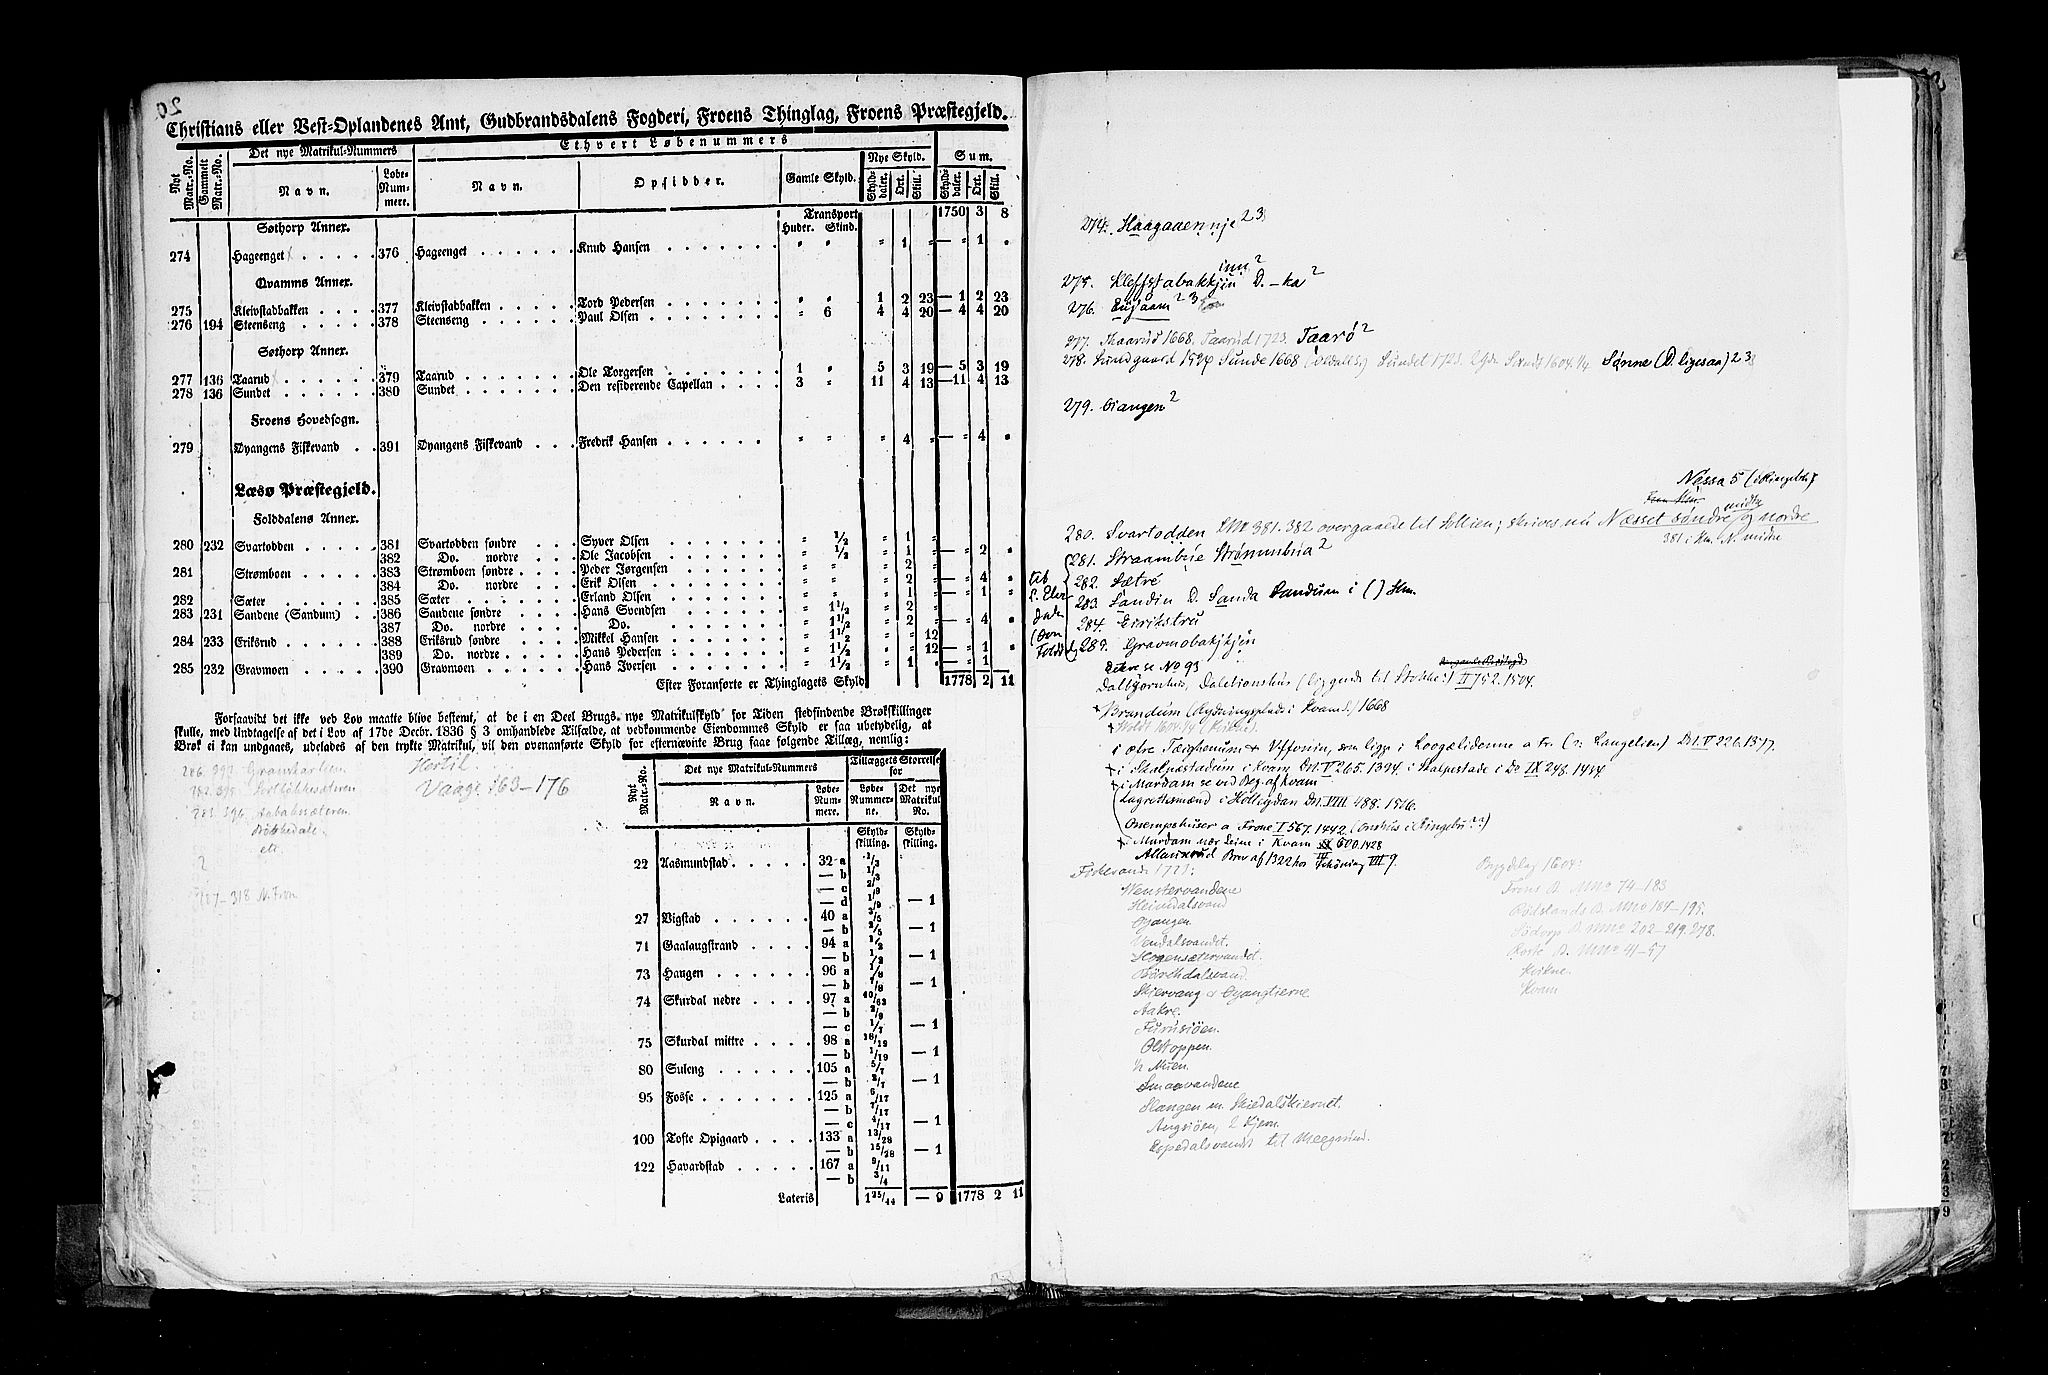 20
Christians eller Vest-Oplandenes Amt, Gudbrandsdalens Fogderi, Froens Thinglag, Froens Præstegjeld.
Nyt Matr.-No. Gammelt Matr.-No. Det nye Matrikul-Nummers Ethvert Løbenummers
Nye Skyld. Sum.
Navn. Løbe-Nummere. Navn. Opsidder. Gamle Skyld. Skylddaler. Ort. Skill. Skylddaler. Ort. Skill.
Transport 1750 3 8
Søthorp Annex. Huder. Skind.
274 Hageenget . . . . . 376 Hageenget . . . . . . Knud Hansen . . . . . . . " " " 1 " — " 1 "
Qvamms Annex.
275 Kleivstadbakken . . . 377 Kleivstadbakken . . . . Tord Pedersen . . . . . . . " " 1 2 23 — 1 2 23
276 194 Steenseng . . . . . 378 Steenseng . . . . . . Paul Olsen . . . . . . . " 6 4 4 20 — 4 4 20
Søthorp Annex.
277 136 Taarud . . . . . 379 Taarud . . . . . . . Ole Torgersen . . . . . . . 1 " 5 3 19 — 5 3 19
278 136 Sundet . . . . . 380 Sundet . . . . . . . Den residerende Capellan . . . . 3 " 11 4 13 — 11 4 13
Froens Hovedsogn.
279 Øyangens Fiskevand . . 391 Øyangens Fiskevand . . . Fredrik Hansen . . . . . . " " " 4 " — " 4 "
Læsø Præstegjeld.
Folddalens Annex.
280 232 Svartodden . . . . . 381 Svartodden søndre . . . . Syver Olsen . . . . . . . " ½ " 1 "
382 Do. nordre . . . . Ole Jacobsen . . . . . . " ½ " 1 " — " 2 "
281 Strømboen . . . . . 383 Strømboen søndre . . . . Peder Jørgensen . . . . . . " " " 2 "
384 Do. nordre . . . . Erik Olsen . . . . . . . " " " 2 " — " 4 "
282 Sæter . . . . . 385 Sæter . . . . . . Erland Olsen . . . . . . " " " 1 " — " 1 "
283 231 Sandene (Sandum) . . 386 Sandene søndre . . . . Hans Svendsen . . . . . . " 1½ " 2 "
387 Do. nordre . . . . Do. . . . . . . " 1½ " 2 " — " 4 "
284 233 Eriksrud . . . . . 388 Eriksrud søndre . . . . Mikkel Hansen . . . . . . " 1½ " " 12
389 Do. nordre . . . . Hans Pedersen . . . . . . " 1½ " " 12 — " 1 "
285 232 Gravmoen . . . . . 390 Gravmoen . . . . . . Hans Iversen . . . . . . " 1½ " 1 " — " 1 "
Efter Foranførte er Thinglagets Skyld 1778 2 11
Forsaavidt det ikke ved Lov maatte blive bestemt, at de i en Deel Brugs nye Matrikulskyld for Tiden stedfindende Brøkskillinger
skulle, med Undtagelse af det i Lov af 17de Decbr. 1836 § 3 omhandlede Tilfælde, at vedkommende Eiendommes Skyld er saa ubetydelig, at
Brøk ei kan undgaaes, udelades af den trykte Matrikul, vil den ovenanførte Skyld for efternævnte Brug faae følgende Tillæg, nemlig:
Hertil
Vaage 163–176
287–318 N. Fron
Nyt Matr.-No. Det nye Matrikul-Nummers Tillæggets Størrelse for
Navn. Løbe-Nummere. Løbe-Nummerne. Det nye Matrikul No.
Skyldskilling. Skyldskilling.
22 Aasmundstad . . . . . 32 a 1/3
— b 1/3
— c 2/3
— d 1/9 — 1
27 Vigstad . . . . . . 40 a 3/5
— b 2/5 — 1
71 Gaalaugstrand . . . . 94 a 1/2
— b 1/2 — 1
73 Haugen . . . . . . 96 a 1/8
— b 7/8 — 1
74 Skurdal nedre . . . . 97 a 40/63
— b 2/9
— c 1/7 — 1
75 Skurdal mittre . . . . 98 a 18/19
— b 1/19 — 1
80 Suleng . . . . . . 105 a 5/7
— b 2/7 — 1
95 Fosse . . . . . . . 125 a 6/17
— b 7/17
— c 4/17 — 1
100 Tofte Opigaard . . . . 133 a 13/28
— b 15/28 — 1
122 Havardstad . . . . . 167 a 9/11
— b 3/4
Lateris 1 25/44 — 9 1778 2 11
274. Haagaaennje 2 3
inn 2
275. Kleffstabakkjin D. –ka 2
276. Engjaam 2 3
277. Thaarud 1668. Taarud 1723. Taarø 2
278. Sundgaard 1594 Sunde 1668 Sundet 1723. Sunde 1604. 1/4 Sønne (D. ligesaa) 2 3
279. Øiangen 2
Nessa 5 (i Ringebu)
midtre
280. Svartodden LNo 381. 382 overgaaede til Sollien; skrives nu Næsset søndre og nordre
381 i Km. N. midtre
281. Straambue Strømmbua 2
282. Sætre
283. Sandin D. Sanda Sandum i ( ) Km.
284. Eirikstru
285. Gravmobakkjin
til
(Ovn
Foldd.)
Ectere se No 93
Dalbjørnhus, Daleiionshus (liggende til Stokke) II 752. 1504.
Brandum (Rydningsplads i Kvam) 1668
i øtre Tæighenum & Vffonin, som liggi i Loogælidenne a Fr. (o: Laugelien) DN. V 226. 1377.
i Skalpæstadum i Kvam DN. V 265. 1394. i Skalpestade i Do IX 248. 1434
i Murdam se ved Beg. af Kvam
Lagrettesmænd i Holligdan DN. VIII 488. 1516.
Onempshuser a Frone I 567. 1442 (Onshus i Ringebu??)
Murdam nær Leine i Kvam 600. 1428
Allmixrud Brev af 1322 hos Schöning VII 9.
Fiskevande 1723:
Wenstervandene
Heimdalsvand
Øyangen
Vendalsvandet.
Hogensætervandet.
Börchdalsvand
Skiervang & Øyangtierne
Aakre.
Furusiöen.
Olstappen.
½ Muen.
Smaavandene
Slangen m. Skiedalskiernet.
Angsiöen, 2 Kjern.
Espedalsvandt til Meegrund.
Bygdelag 1604:
Frons B. MNo 74–183
Rödslands B. MNo 184–195.
Södorp B. MNo 202–219. 278.
Roste B. MNo 41–57
Kvikne.
Kvam